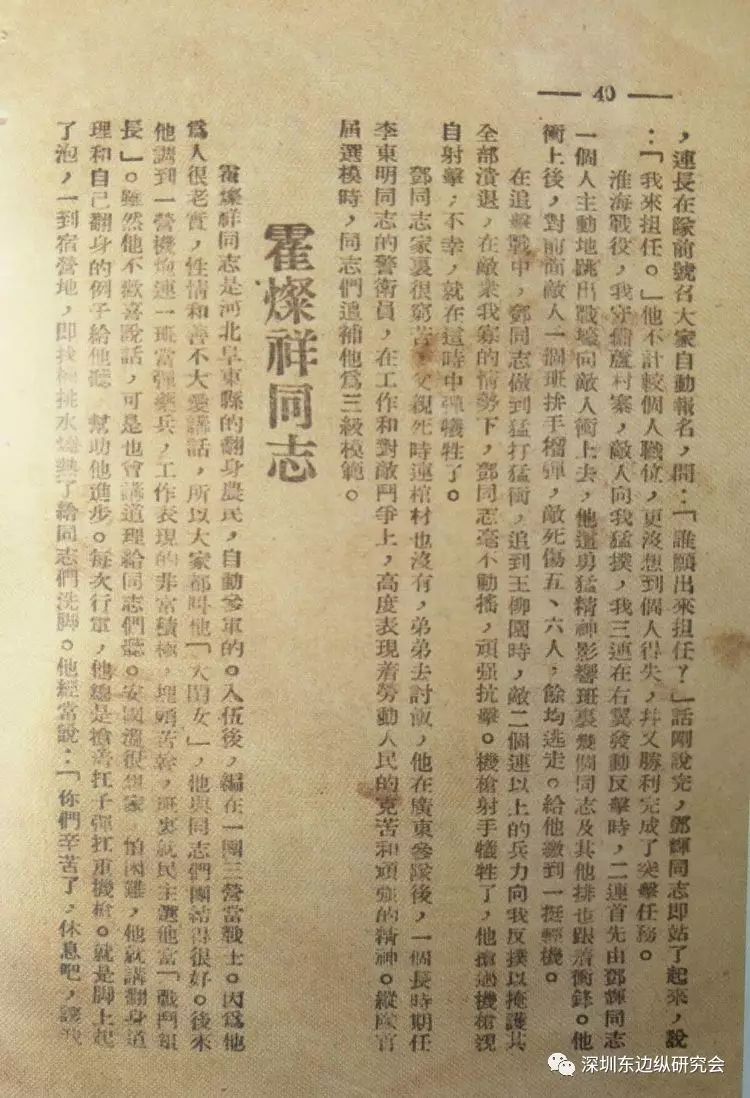 — 40 —
，連長在隊前號召大家自動報名，問：「誰願出來担任？」話剛說完，鄧輝同志即站了起來，說
：「我來担任。」他不計較個人職位，更沒想到個人得失，幷又勝利完成了突擊任務。
淮海戰役，我守備蘆村寨，敵人向我猛撲，我三連在右翼發動反擊時，二連首先由鄧輝同志
一個人主動地跳出戰壕向敵人衝上去，他這勇猛精神影響班裏幾個同志及其他排也跟着衝鋒。他
衝上後，對前面敵人一個班拚手榴彈，敵死傷五、六人，餘均逃走。給他繳到一挺輕機。
在追擊戰中，鄧同志做到猛打猛衝，追到王柳園時，敵二個連以上的兵力向我反撲以掩護其
全部潰退，在敵衆我寡的情勢下，鄧同志毫不動搖，頑强抗擊。機槍射手犧牲了，他搶過機槍親
自射擊；不幸，就在這時中彈犧牲了。
鄧同志家裏很窮苦，父親死時連棺材也沒有，弟弟去討飯，他在廣東參隊後，一個長時期任
李東明同志的警衛員，在工作和對敵鬥爭上，高度表現着勞動人民的克苦和頑强的精神。縱隊首
屆選模時，同志們追補他爲三級模範。
霍燦祥同志
霍燦祥同志是河北阜東縣的翻身農民，自動參軍的。入伍後，編在一團三營當戰士。因爲他
爲人很老實，性情和善不大愛講話，所以大家都叫他「大閨女」，他與同志們團結得很好。後來
他調到一營機炮連一班當彈藥兵，工作表現的非常積極，埋頭苦幹，班裏就民主選他當「戰鬥組
長」。雖然他不歡喜說話，可是也會講道理給同志們聽。安國溫很想家，怕困難，他就講翻身道
理和自己翻身的例子給他聽，幫助他進步。每次行軍，他總是搶着扛子彈扛重機槍。就是脚上起
了泡，一到宿營地，即找柴挑水燒熱了給同志們洗脚。他經常說：「你們辛苦了，休息吧，讓我
深圳东边纵研究会